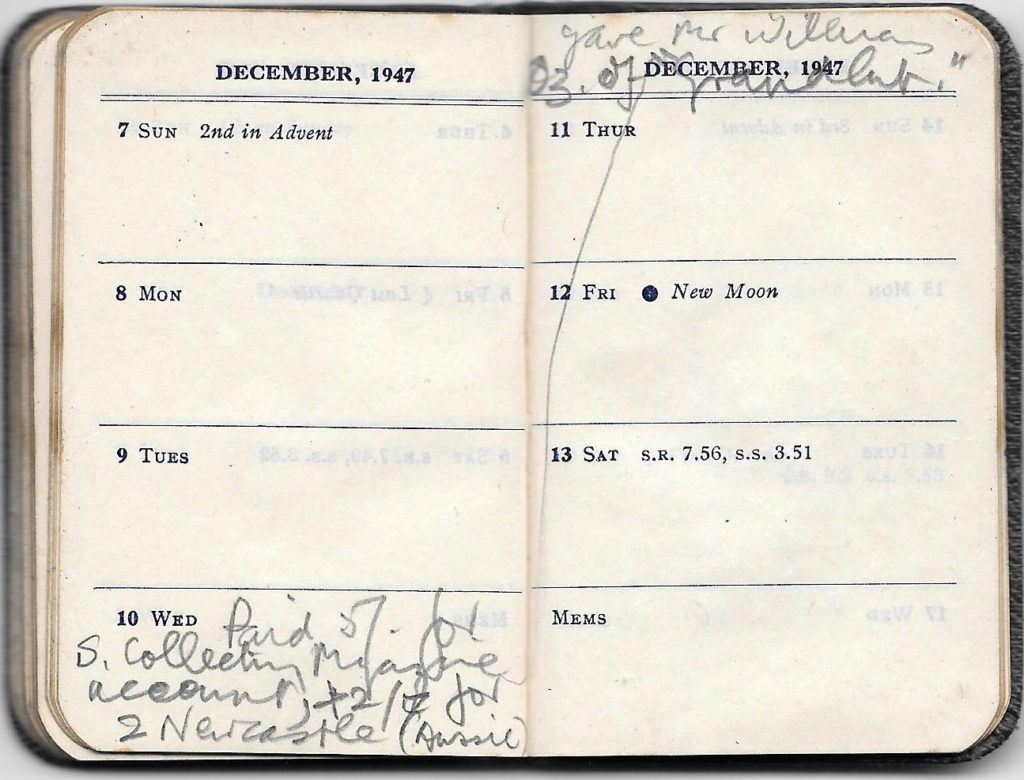 DECEMBER, 1947
7 SUN 2nd in Advent
8 MON
9 TUES
10 WED Paid 5/. for
S. Collecting Magazine
account, +2/ for
2 Newcastle (Aussie)
gave Mr Williams
DECEMBER, 1947
oz. of "Grand Cut."
11 THUR
12 FRI New Moon
13 SAT S.R. 7.56, S.S. 3.51
MEMS